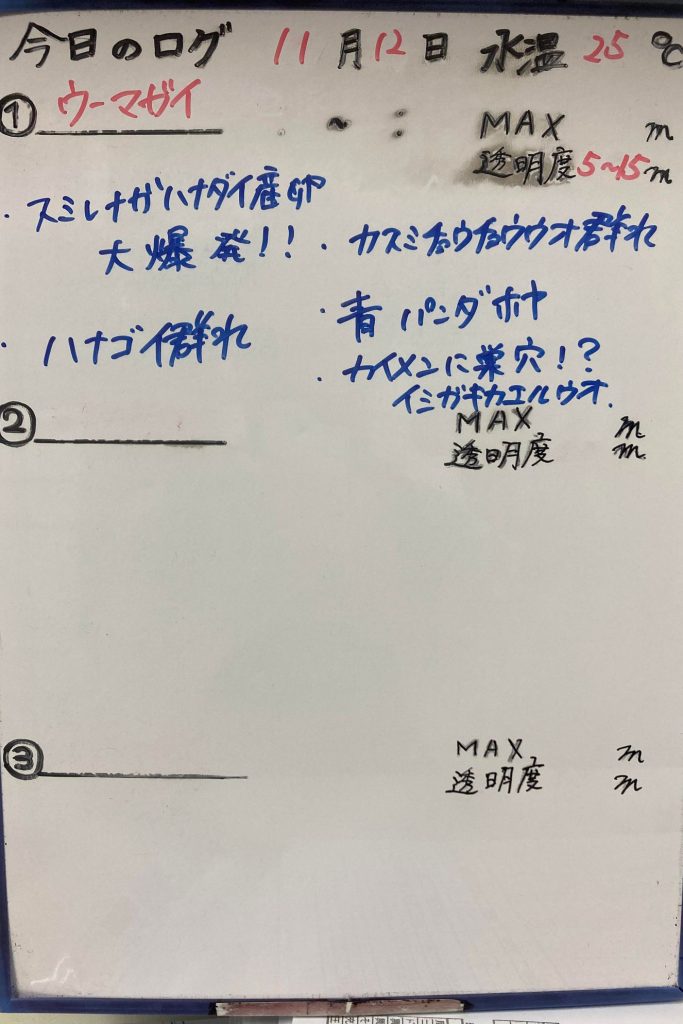 今日のログ 11月12日 水温 25℃
① ウーマガイ ~ : MAX m
透明度5~15m
・スミレナガハナダイ産卵
大爆発!!
・カスミチョウチョウウオ群れ
・ハナゴイ群れ
・青パンダホヤ
・カイメンに巣穴!?
イシガキカエルウオ.
② MAX m
透明度 m
③ MAX m
透明度 m